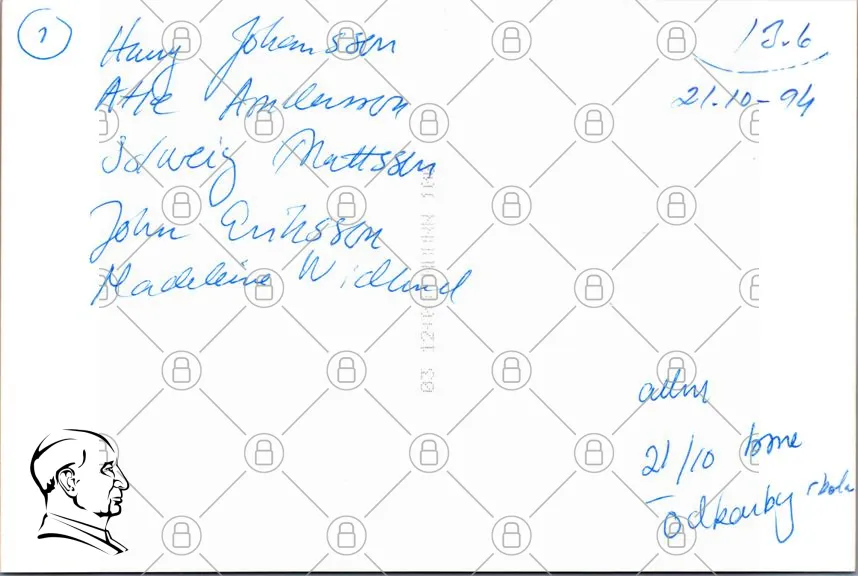 1
Harry Johansson
Atte Andersson
Solweig Mattsson
John Eriksson
Madeleine Widlund
13.6
21.10-94
21/10
Ödkarby skola